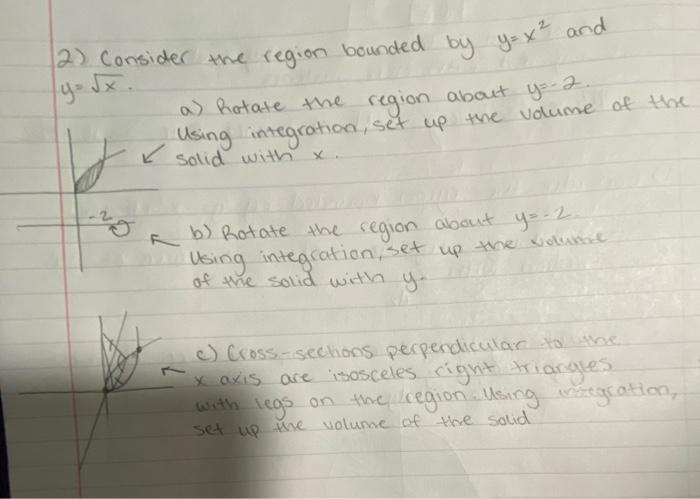 2) Consider the region bounded by y=x² and
y=√x.
a) Rotate the region about y=-2.
Using integration, set up the volume of the
solid with x.
-2
b) Rotate the region about y=-2.
Using integration, set up the volume
of the solid with y.
c) Cross-sections perpendicular to the
x axis are isosceles right triangles
with legs on the region. Using integration,
set up the volume of the solid